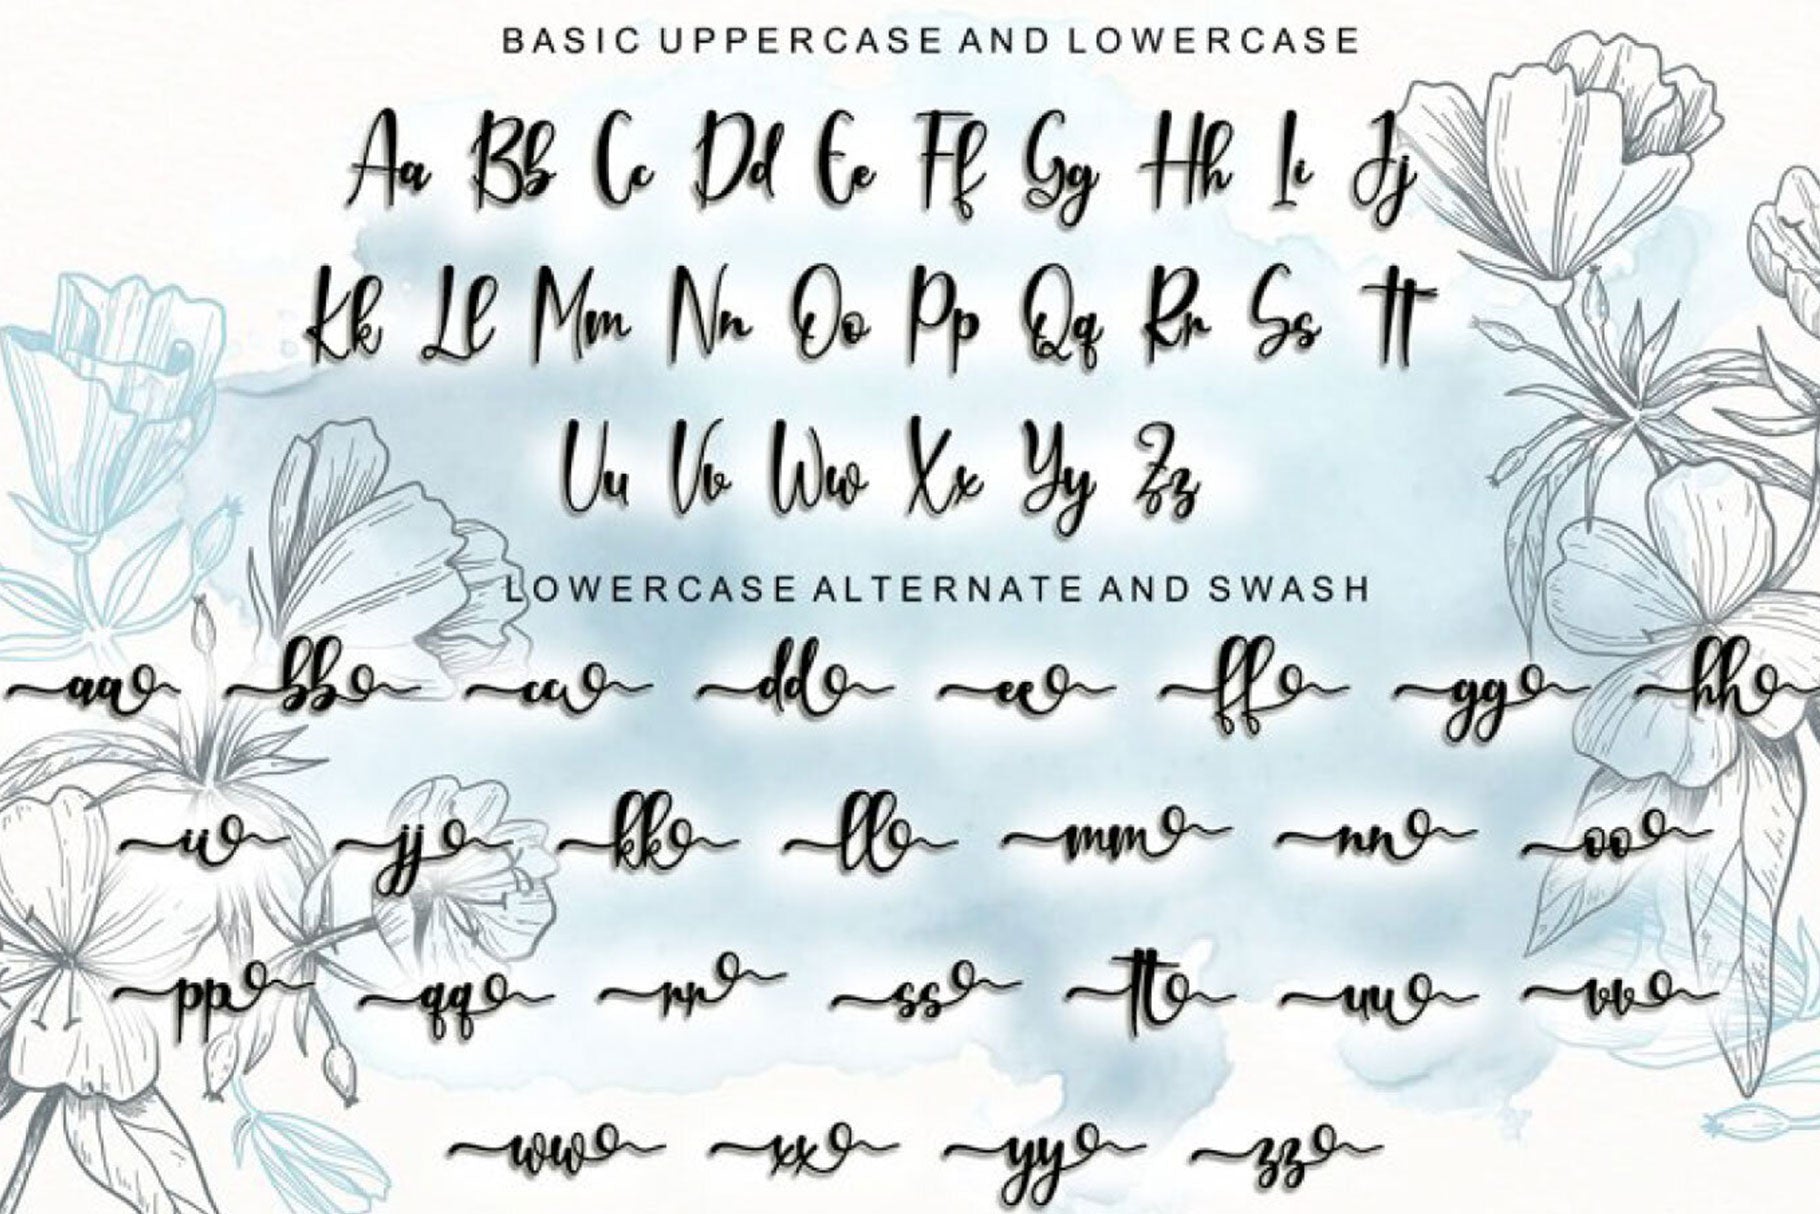 BASIC UPPERCASE AND LOWERCASE
Aa Bb Cc Dd Ee Ff Gg Hh Ii Jj
Kk Ll Mm Nn Oo Pp Qq Rr Ss Tt
Uu Vv Ww Xx Yy Zz
LOWERCASE ALTERNATE AND SWASH
aa bb cc dd ee ff gg hh
ii jj kk ll mm nn oo
pp qq rr ss tt uu vv
ww xx yy zz